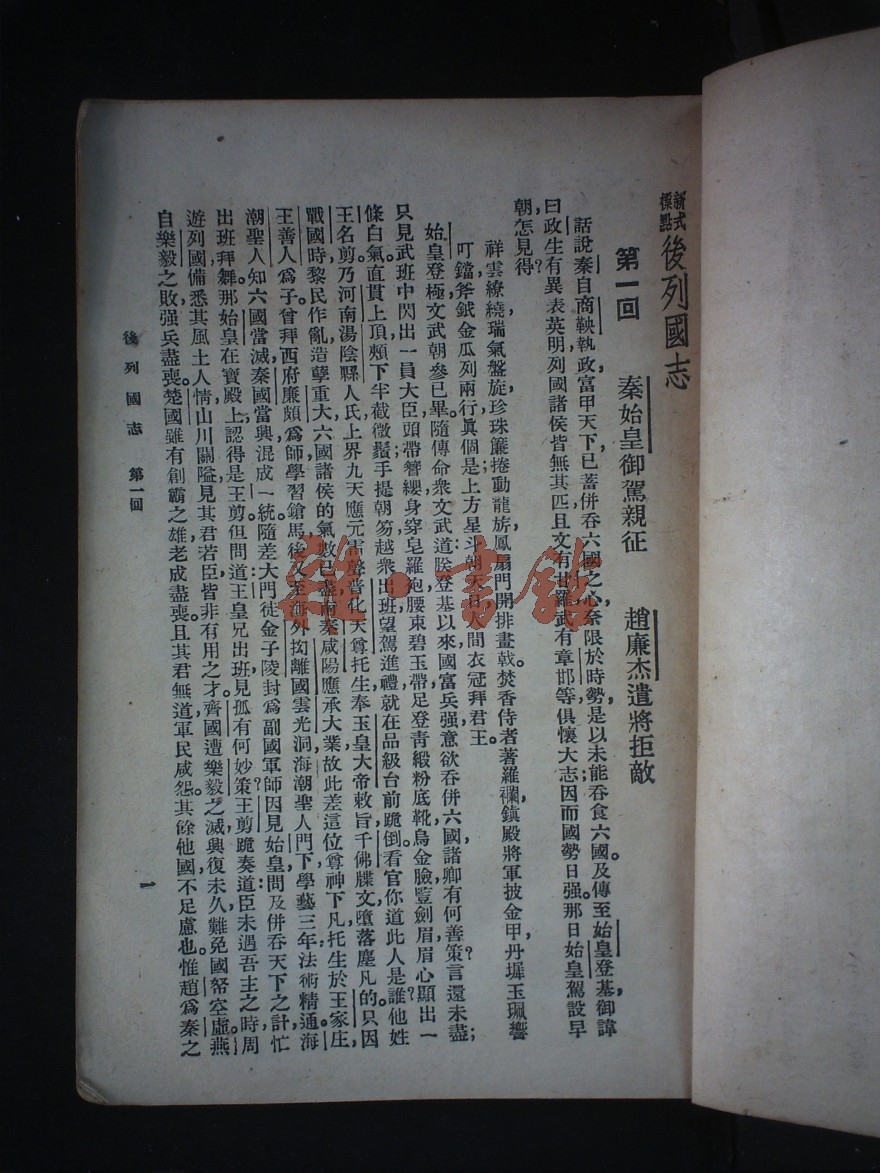 新式標點 後列國志
第一回 秦始皇御駕親征 趙廉杰遣將拒敵
話說秦自商鞅執政，富甲天下，已蓄併吞六國之心，奈限於時勢，是以未能吞食六國。及傳至始皇登基，御諱
曰政，生有異表英明，列國諸侯皆無其匹；且文有甘羅，武有章邯等，俱懷大志，因而國勢日强。那日始皇駕設早
朝，怎見得？
祥雲繚繞，瑞氣盤旋，珍珠簾捲動龍旂，鳳扇門開排畫戟。焚香侍者著羅襴，鎮殿將軍披金甲，丹墀玉珮響
叮鐺，斧鉞金瓜列兩行；眞個是上方星斗朝天日，人間衣冠拜君王。
始皇登極，文武朝參已畢。隨傳命衆文武道：朕登基以來，國富兵强，意欲吞併六國，諸卿有何善策？言還未盡；
只見武班中閃出一員大臣，頭帶簪纓，身穿皂羅袍，腰束碧玉帶，足登靑緞粉底靴，烏金臉，豎劍眉，眉心顯出一
條白氣，直貫上頂，頰下半截微鬚，手提朝笏，越衆出班，望駕進禮，就在品級台前跪倒。看官，你道此人是誰？他姓
王名剪，乃河南湯陰縣人氏，上界九天應元雷聲普化天尊托生，奉玉皇大帝敕旨，千佛牒文，墮落塵凡的。只因
戰國時黎民作亂，造孽重大，六國諸侯的氣數已盡，南秦咸陽應承大業，故此差這位尊神下凡，托生於王家庄，
王善人爲子。曾拜西府廉頗爲師，學習鎗馬，後又至海外抝離國雲光洞海潮聖人門下，學藝三年，法術精通。海
潮聖人知六國當滅，秦國當興，混成一統，隨差大門徒金子陵封爲副國軍師。因見始皇問及併吞天下之計，忙
出班拜舞。那始皇在寶殿上，認得是王剪，但問道：王皇兄出班見孤，有何妙策？王剪跪奏道：臣未遇吾主之時，周
遊列國，備悉其風土人情，山川關隘，見其君若臣，皆非有用之才。齊國遭樂毅之滅，興復未久，難免國帑空虛。燕
自樂毅之敗，强兵盡喪。楚國雖有創霸之雄，老成盡喪，且其君無道，軍民咸怨。其餘他國，不足慮也。惟趙爲秦之
後列國志 第一回
一
雜·書館